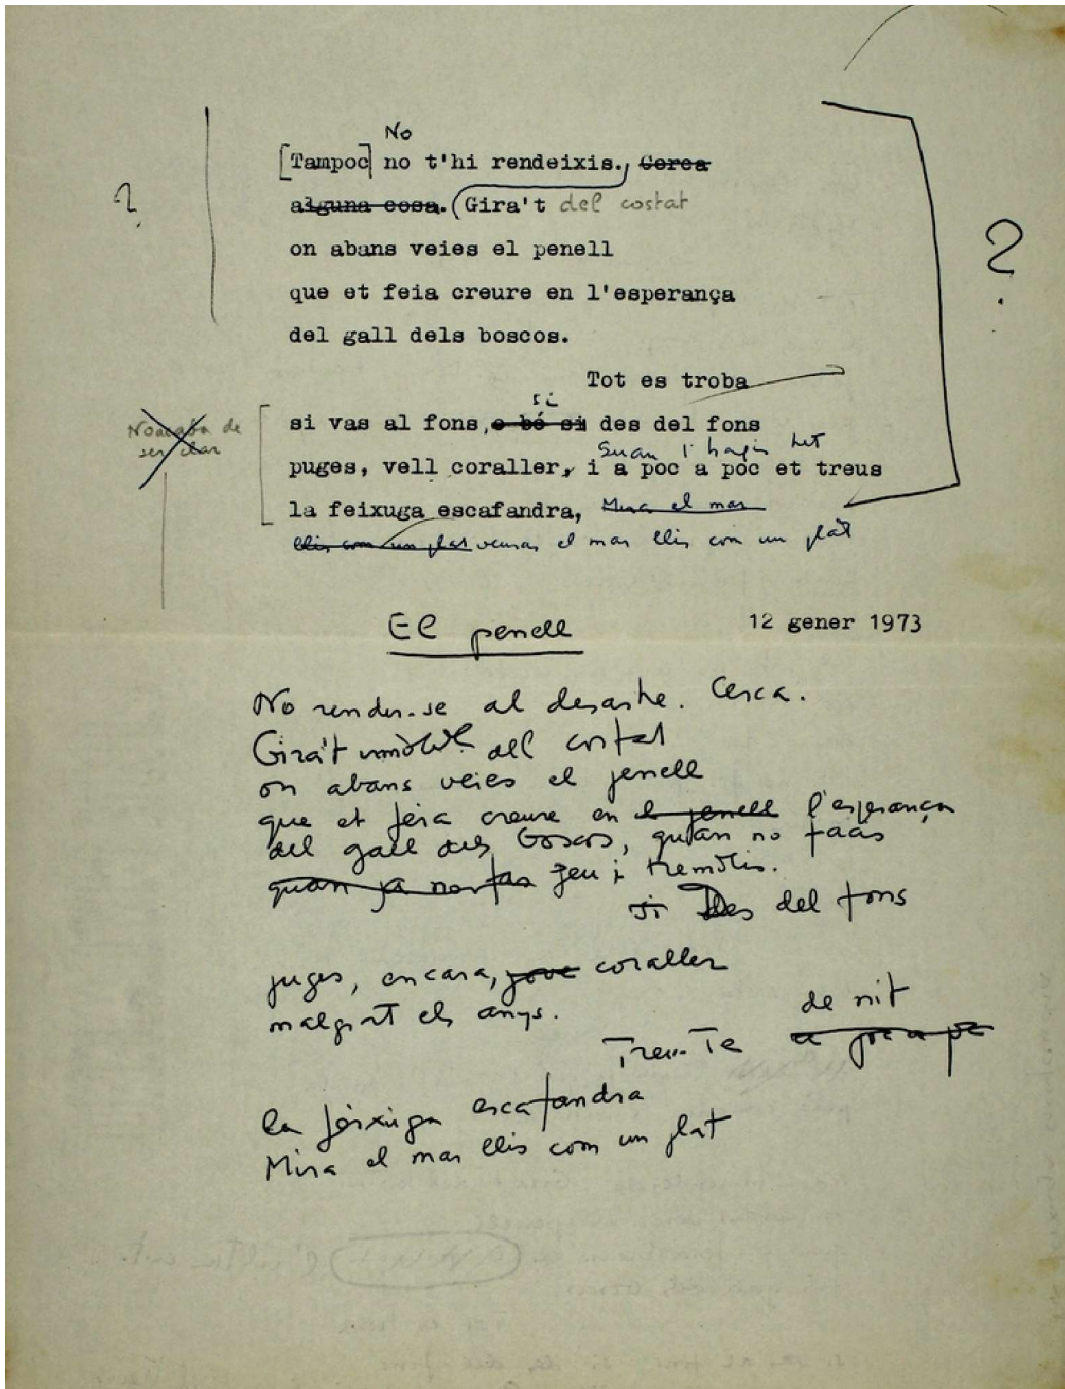 No
[Tampoc] no t'hi rendeixis. Cerca
alguna cosa. (Gira't del costat
?
on abans veies el penell
?
que et feia creure en l'esperança
del gall dels boscos.
Tot es troba
si
si vas al fons, o bé si des del fons
No acaba de
ser clar
l'hagis tret
puges, vell coraller, i a poc a poc et treus
la feixuga escafandra, Mira el mar
llis com un plat veuras el mar llis com un plat
El penell
12 gener 1973
No rendir-se al desastre. Cerca.
Gira't immòbil del costat
on abans veies el penell
que et feia creure en el penell l'esperança
del gall dels boscos, quan no faàs
quan ja no fas feu i tremolis.
si Des del fons
puges, encara, jove coraller
malgrat els anys.
de nit
Treu-Te a poc a poc
la feixuga escafandra
Mira el mar llis com un plat